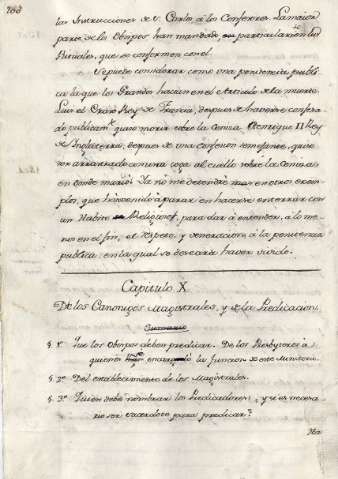 las Instrucciones de S. Carlos, á los Confesores. La maior
parte de los Obispos han mandado en particular en los
Rituales, que se conformen con el
Se puede considerar como una penitencia publi-
ca la que los Grandes hacian en el Articulo de la muerte
Luis el Craso Rey de Francia, despues de haverse confesa-
do publicam.te quiso morir sobre la Ceniza. Henrique II Rey
de Inglaterra, despues de una confesion semejante, quiso
ser arrastrado con una soga al cuello sobre la Ceniza
en donde murió. Ya no me detendré mas en otros exem-
plos, que haviendo á parar en hacerse enterrar con
un Habito Religioso, para dar á entender, a lo me-
nos en el fin, el respeto, y veneracion á la penitencia
publica, en la qual se deseará haver vivido.
Capitulo X
De los Canonigos Magistrales, y de la Predicacion.
Sumario
§. 1º Que los Obispos deben predicar. De los Presbyteros á
quienes la funcion de este Ministerio.
§. 2º Del establecimiento de los Magistrales.
§. 3º Quien debe nombrar los Predicadores, y si es necesa-
rio ser sacerdote para predicar?